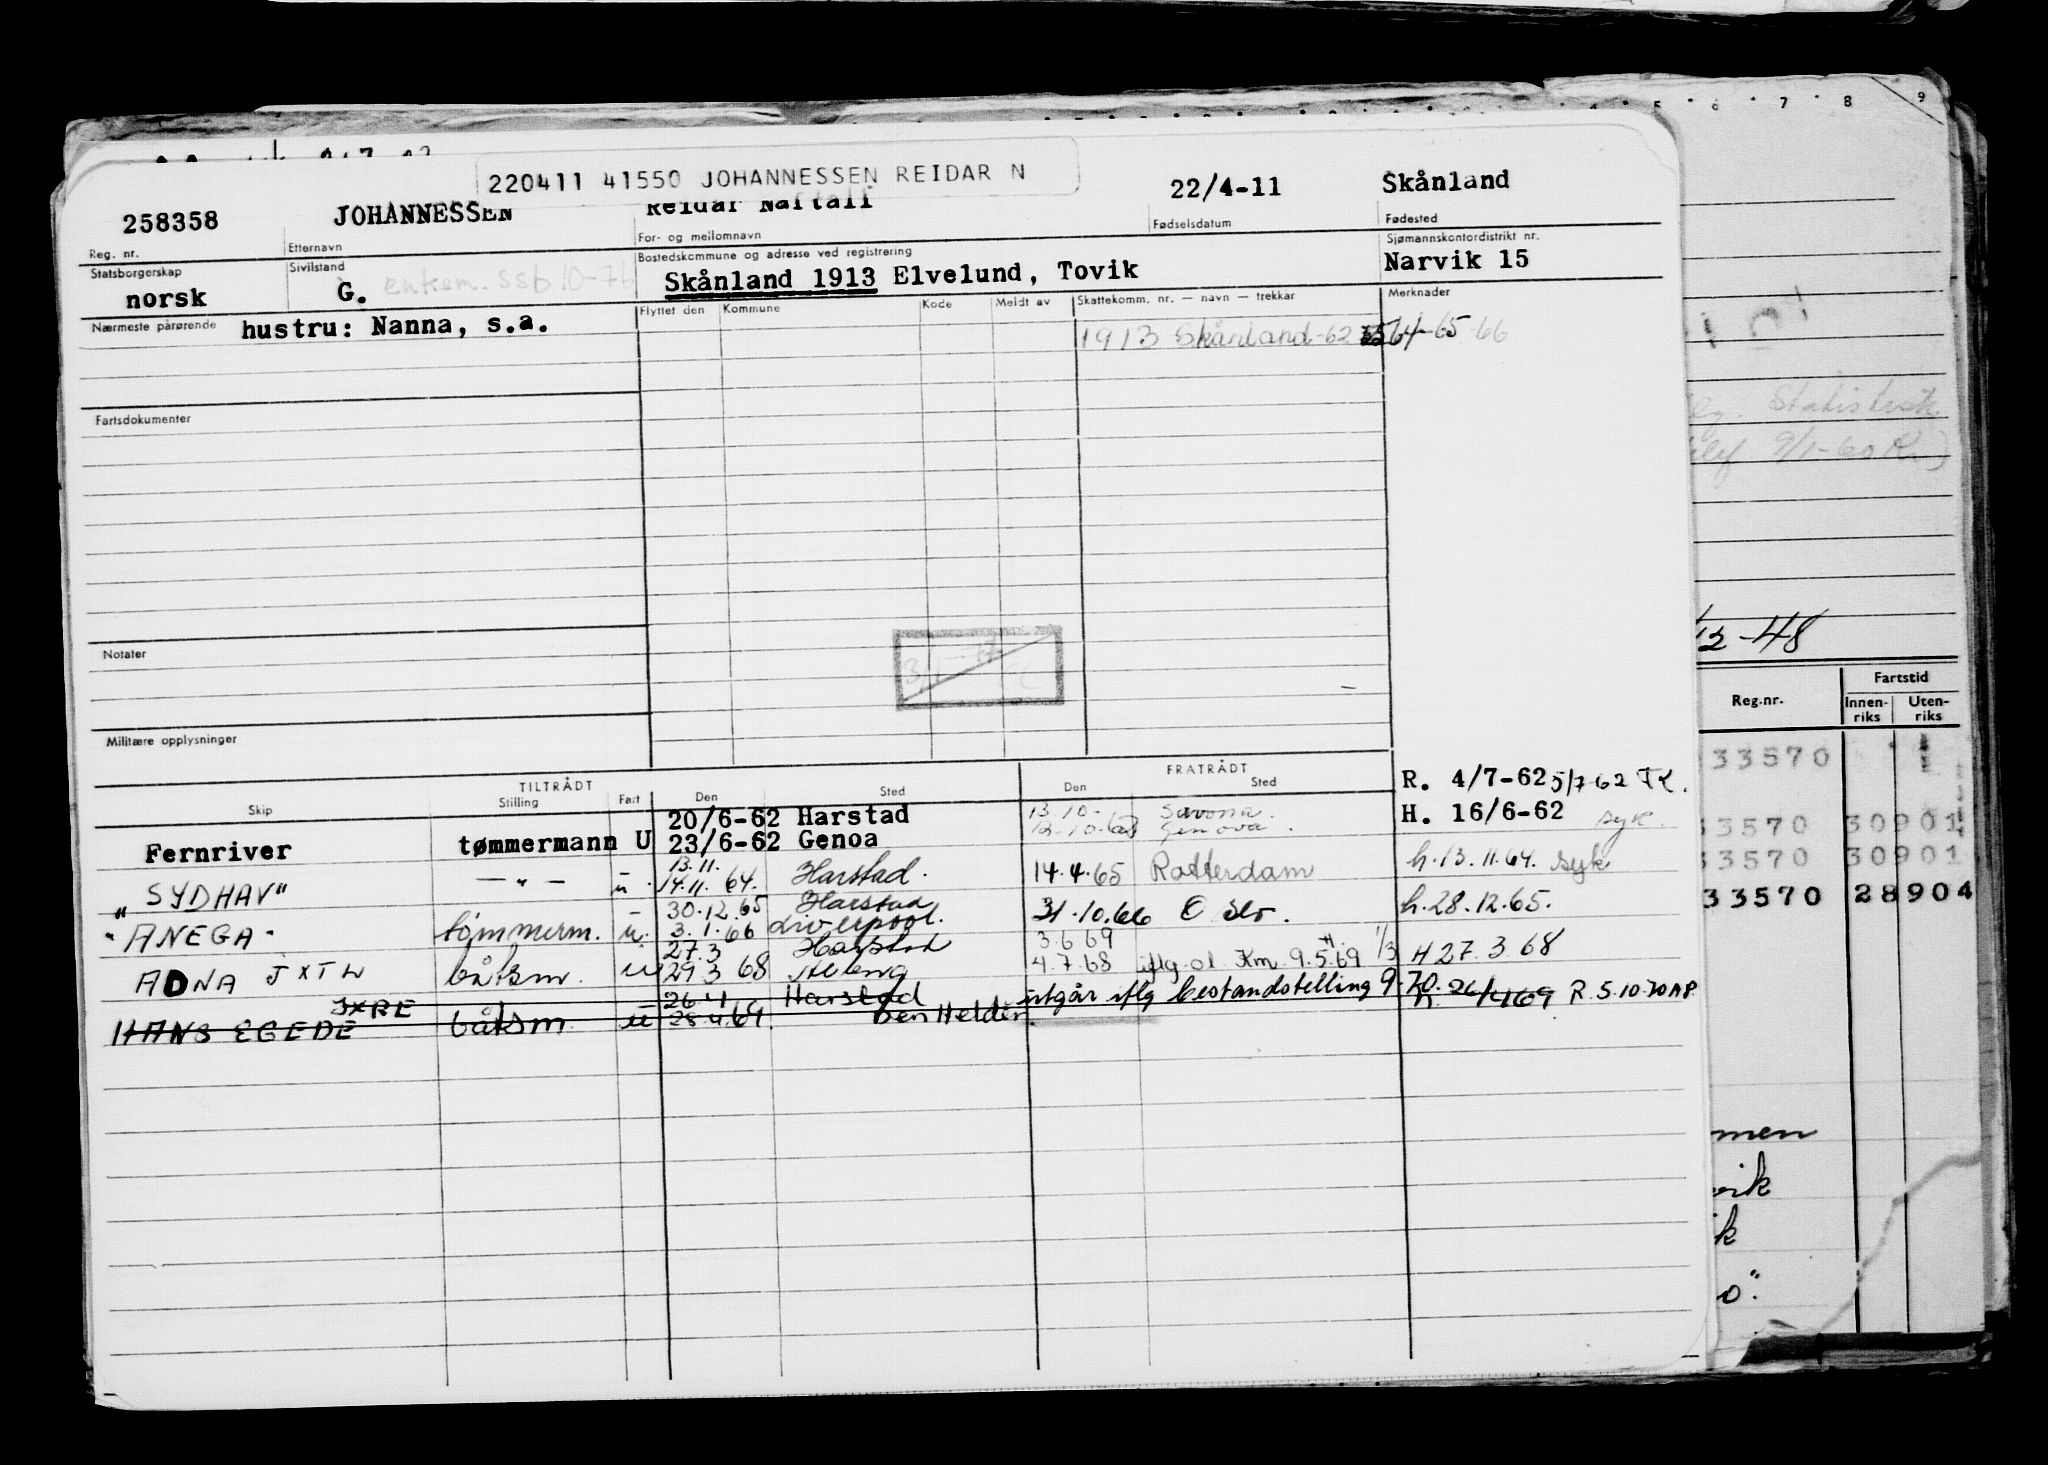 5 6 7 8 9
220411 41550 JOHANNESSEN REIDAR N
258358 JOHANNESSEN Reidar Naftali 22/4-11 Skånland
Reg. nr. Etternavn For- og mellomnavn Fødselsdatum Fødested
Statsborgerskap Sivilstand Bostedskommune og adresse ved registrering Sjømannskontordistrikt nr.
norsk G. enkem. SSB 10-76 Skånland 1913 Elvelund, Tovik Narvik 15
Nærmeste pårørende hustru: Nanna, s.a. Flyttet den Kommune Kode Meldt av Skattekomm. nr. — navn — trekkar Merknader
1913 Skånland-62 64-65-66
Fartsdokumenter
Statistisk
9/1-60
Notater
12-48
Reg.nr. Fartstid
Innen-riks Uten-riks
Militære opplysninger
33570
TILTRÅDT FRATRÅDT
Skip Stilling Fart Den Sted Den Sted
R. 4/7-62 5/7-62
20/6-62 Harstad 13.10- Savona. H. 16/6-62 syk.
Fernriver tømmermann U 23/6-62 Genoa Genova.
33570 30901
13.11.
"SYDHAV" — " — u. 14.11. 64. Harstad. 14.4.65 Rotterdam h.13.11.64. syk
33570 30901
30.12.65 Harstad
"ANEGA" tømmerm. u. 3.1.66 Liverpool. 31.10.66 Oslo. h.28.12.65.
33570 28904
27.3 Harstad 3.6.69
ADNA JXTW båtsm. u 29.3 68 4.7.68 iflg. ol. Km. 9.5.69 H 27.3 68
26.4 Harstad utgår iflg bestandstelling 9-70. h. 26/4 69 R 5.10.70 AP.
HANS EGEDE JXRE båtsm u 28.4.69. Den Helder.